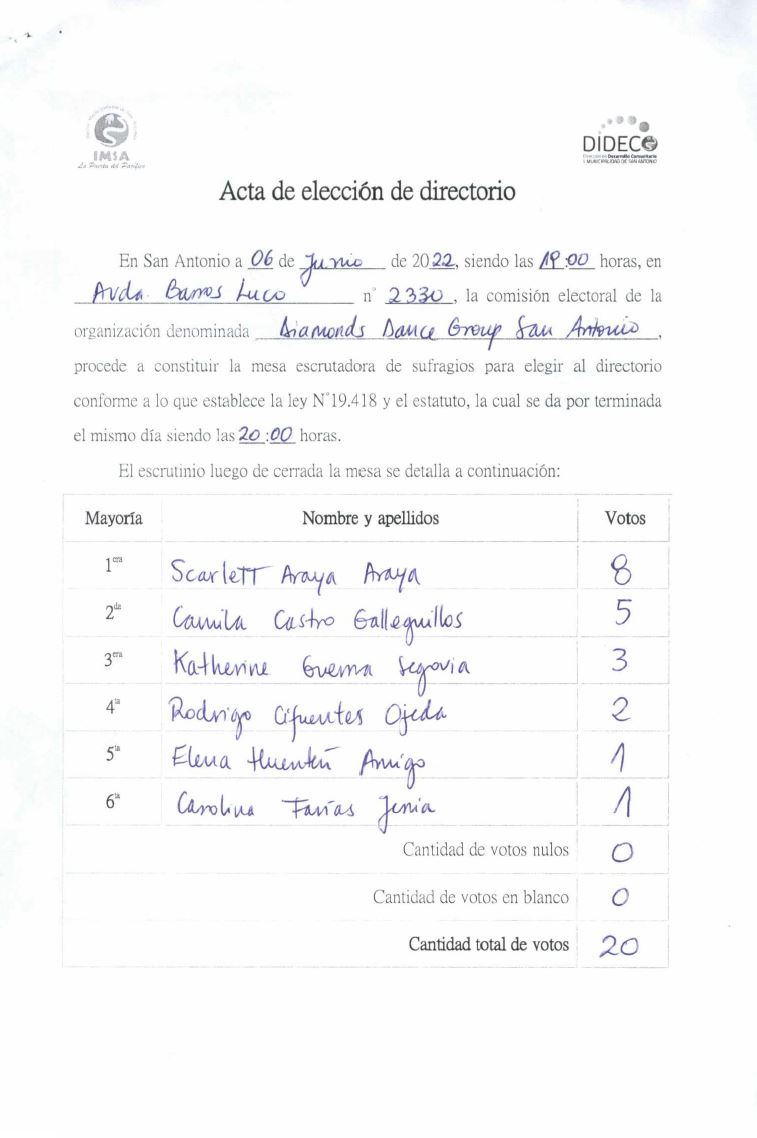 IMSA
La Puerta del Pacífico
DIDECO
Dirección de Desarrollo Comunitario
I. MUNICIPALIDAD DE SAN ANTONIO
Acta de elección de directorio
En San Antonio a 06 de Junio de 2022, siendo las 19:00 horas, en
Avda. Barros Luco n° 2330, la comisión electoral de la
organización denominada Diamonds Dance Group San Antonio,
procede a constituir la mesa escrutadora de sufragios para elegir al directorio
conforme a lo que establece la ley N°19.418 y el estatuto, la cual se da por terminada
el mismo día siendo las 20:00 horas.
El escrutinio luego de cerrada la mesa se detalla a continuación:
Mayoría Nombre y apellidos Votos
1era Scarlett Araya Araya 8
2da Camila Castro Galleguillos 5
3era Katherine Guerra Segovia 3
4ta Rodrigo Cifuentes Ojeda 2
5ta Elena Huenten Amigo 1
6ta Carolina Farías Jenia 1
Cantidad de votos nulos 0
Cantidad de votos en blanco 0
Cantidad total de votos 20